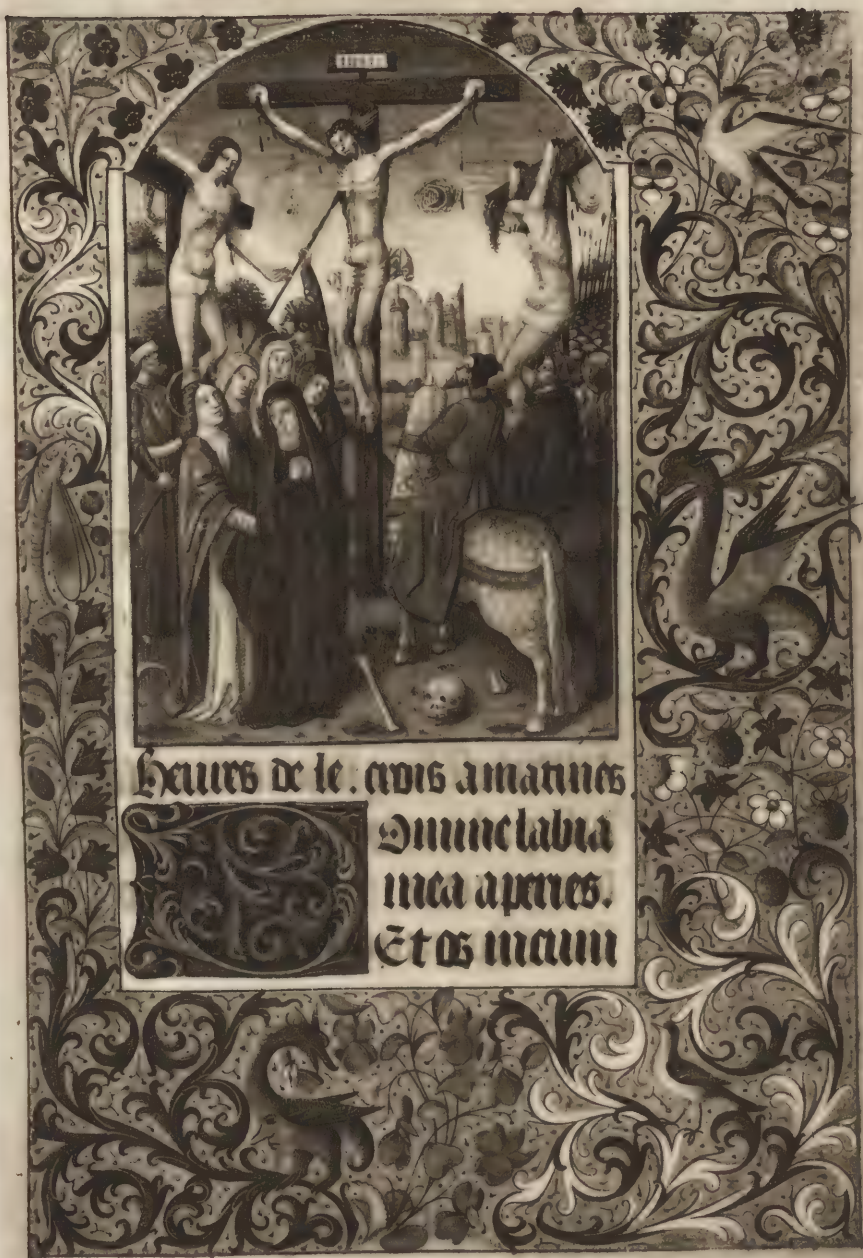 Heures de le . crois a matines.
Domine labia
mea aperies.
Et os meum